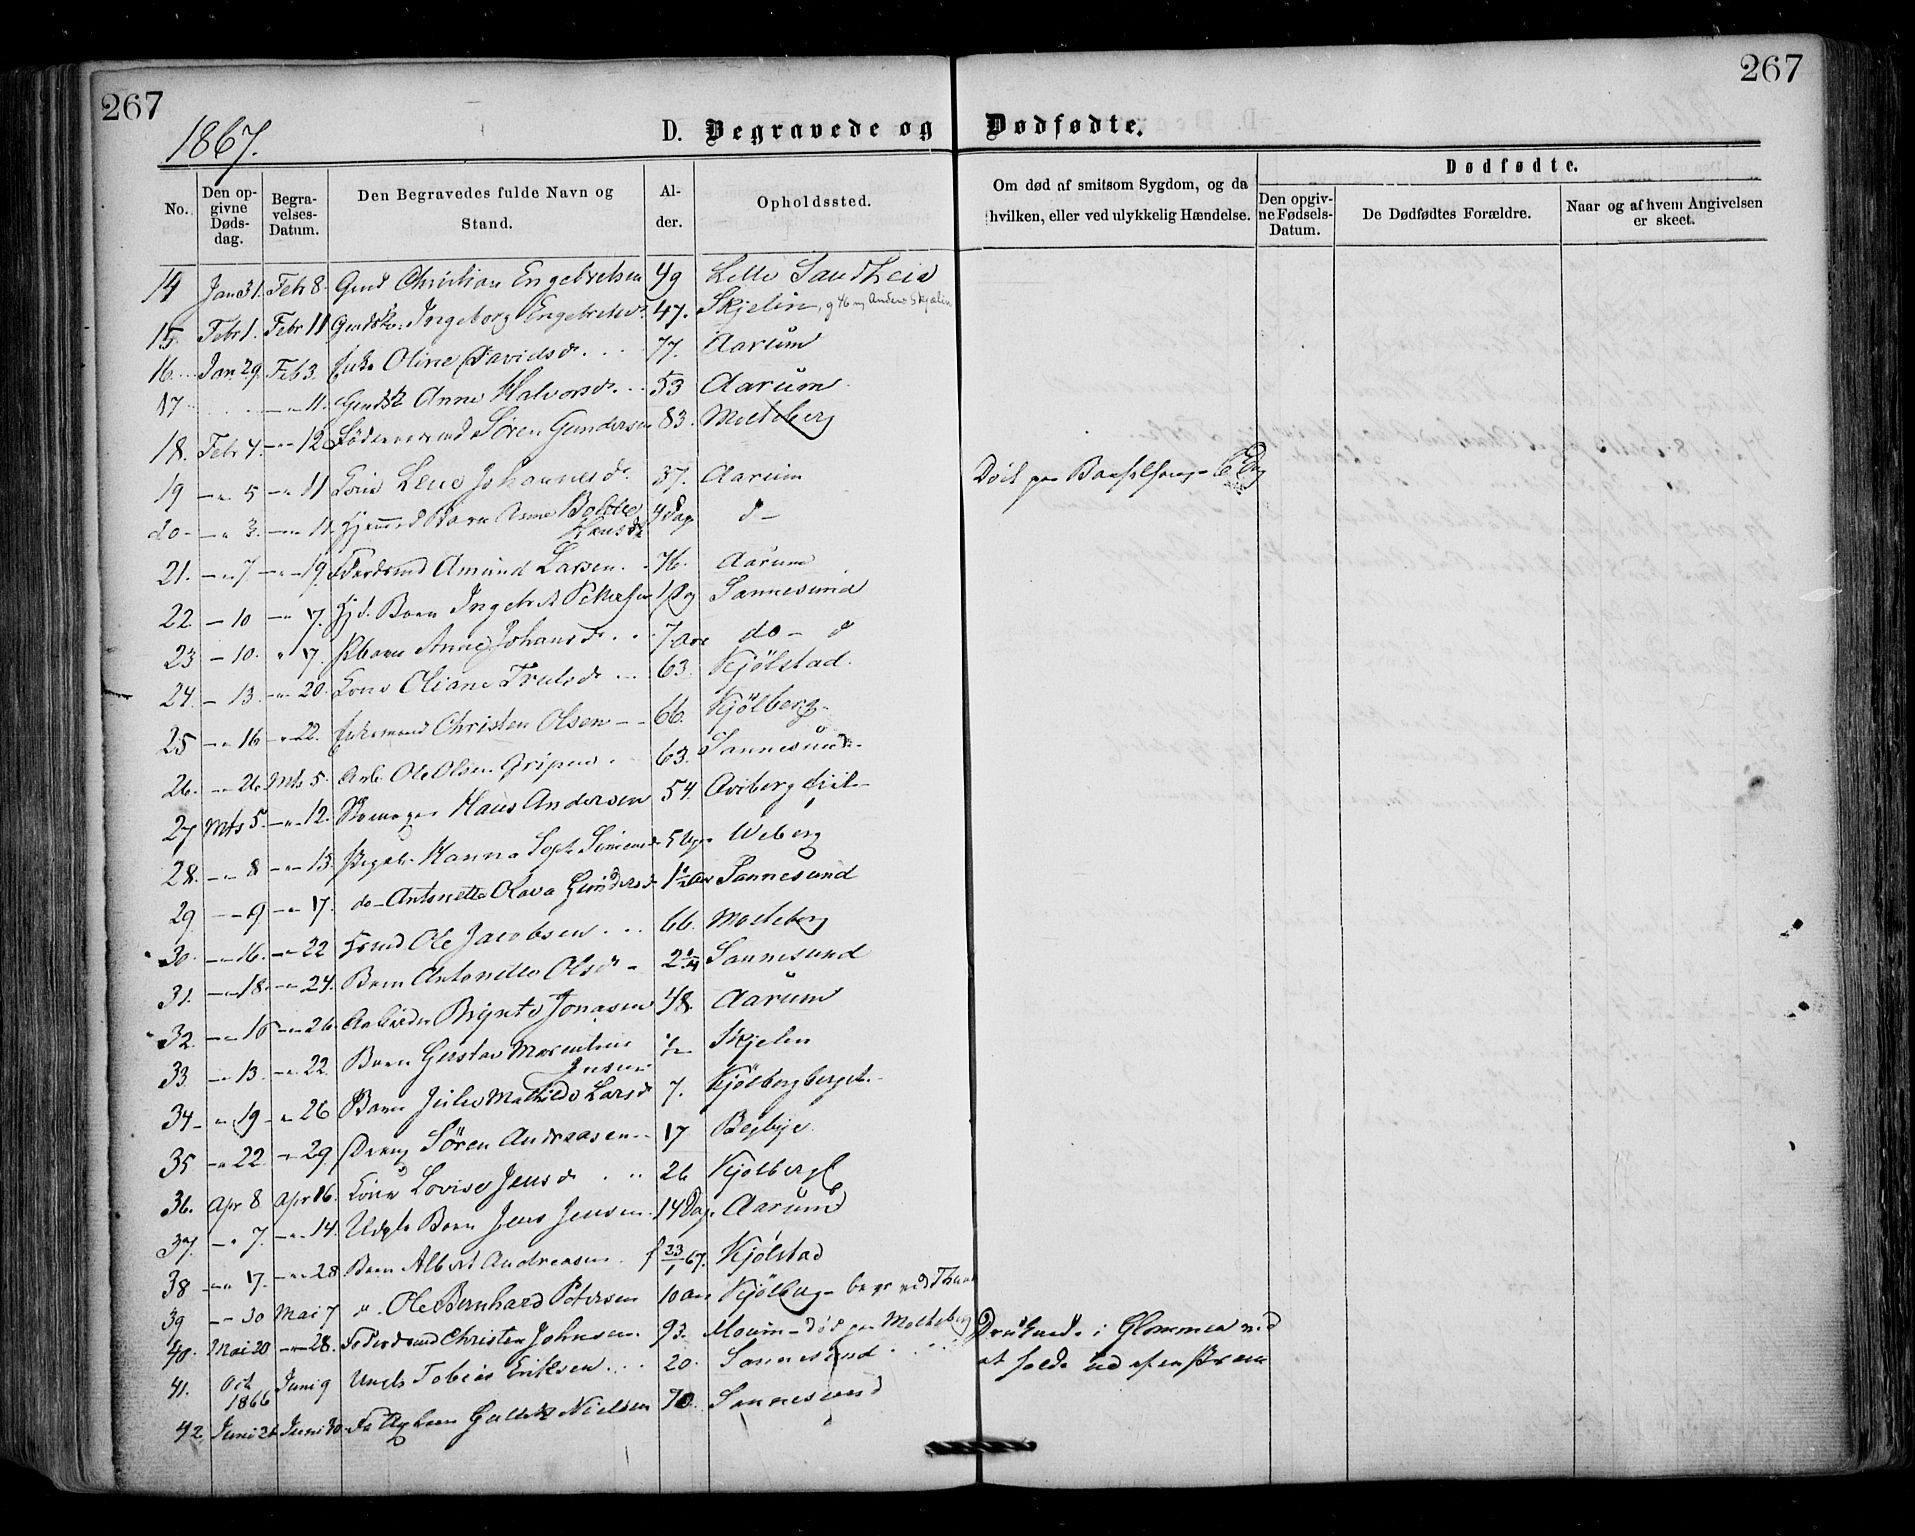 267
267
1867.
D. Begravede og Dødfødte.
No.
Den opgivne Dødsdag.
Begravelses-Datum.
Den Begravedes fulde Navn og Stand.
Alder.
Opholdssted.
Om død af smitsom Sygdom, og da hvilken, eller ved ulykkelig Hændelse.
Dødfødte.
Den opgivne Fødsels-Datum.
De Dødfødtes Forældre.
Naar og af hvem Angivelsen er skeet.
14 Jan 31. Feb 8. Gmd Christian Engebretsen 49 Lille Sandheia
15. Febr 1. Febr 11 Ingeborg Engebretsd. 47. Skjelin, g m Anders Skjelin
16. Jan. 29. Feb 3. Enke Oline Davidsd. 77. Aarum
17 - 11. Gmdsk Anne Halvorsd. 53 Aarum
18. Febr 4. - 12 Sören Gundersen 83. Molteberg
19 - 5 - 11 Kone Lene Johannesd. 37. Aarum
20 - 3. - 11. Barn Hansd 4 Dage d -
21. - 7 - 19. Amund Larsen 76. Aarum
22. - 10 - 17. Barn Ingebret Petersen 1 Dag Sannesund
23 - 10. " 17. Anne Johansd 7 Aar do - d
24 - 13. - 20. Kone Oliane Trulsd 63. Kjölstad.
25 - 16 - 22. Enkemand Christen Olsen 66. Kjölberg
26. - 26. Mts 5. Arb. Ole Olsen 63. Sannesund.
27 Mts 5. - 12. Skomager Hans Andersen 54.
28. - 8 - 13. Hanna Soph. 5 Uger Weberg
29 - 9 - 17. do - Antonette Olava Gundersd 1½ Aar Sannesund
30. - 16. - 22 Ole Jacobsen 66. Molteberg
31. - 18. - 24. Barn Antonette Olsd - 2¼ Sannesund
32. - 15 - 26. Arbeider Brynte Jonasen 48. Aarum
33 - 13. - 22. Barn Gustav ½ Skjelin
34 - 19 - 26 Barn Julie Mathilde Larsd 7. Kjölbergberget.
35 - 22 - 29 Dreng Sören Andreasen 17 Begbye
36. Apr 8 Apr 16. Kone Lovise Jensd 26 Kjölberg
37. - 7. - 14. Barn Jens Jensen. 14 Dage Aarum
38 - 17. - 28 Barn Albert Andreasen f 23/1 67. Kjölstad
39 - 30 Mai 7 ". Ole Bernhard Petersen 10 Aar Kjölberg - begr ved Thune
40. Mai 20 - 28. Christen Johnsen 93. Moum - död paa Molteberg
41. Oct 1866 Juni 9 Tobias Eriksen 20. Sannesund Druknede i Glommen ved at falde ud af en Pram
42. Juni 26 Juni 30 Nielsen 70. Sannesund